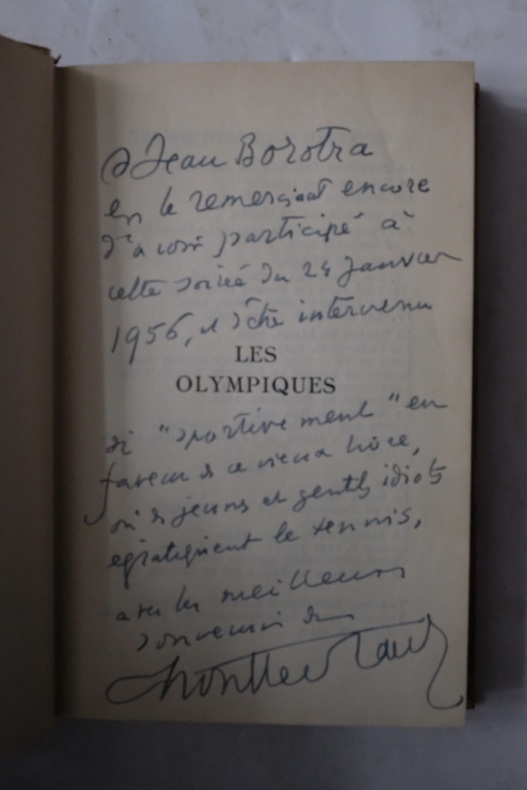 à Jean Borotra
en le remerciant encore
d'avoir participé à
cette soirée du 24 janvier
1956, et d'être intervenu
LES
OLYMPIQUES
si "sportivement" en
faveur de ce vieux livre,
où de jeunes et gentils idiots
égratignent le tennis,
avec les meilleurs
souvenirs de
Montherlant